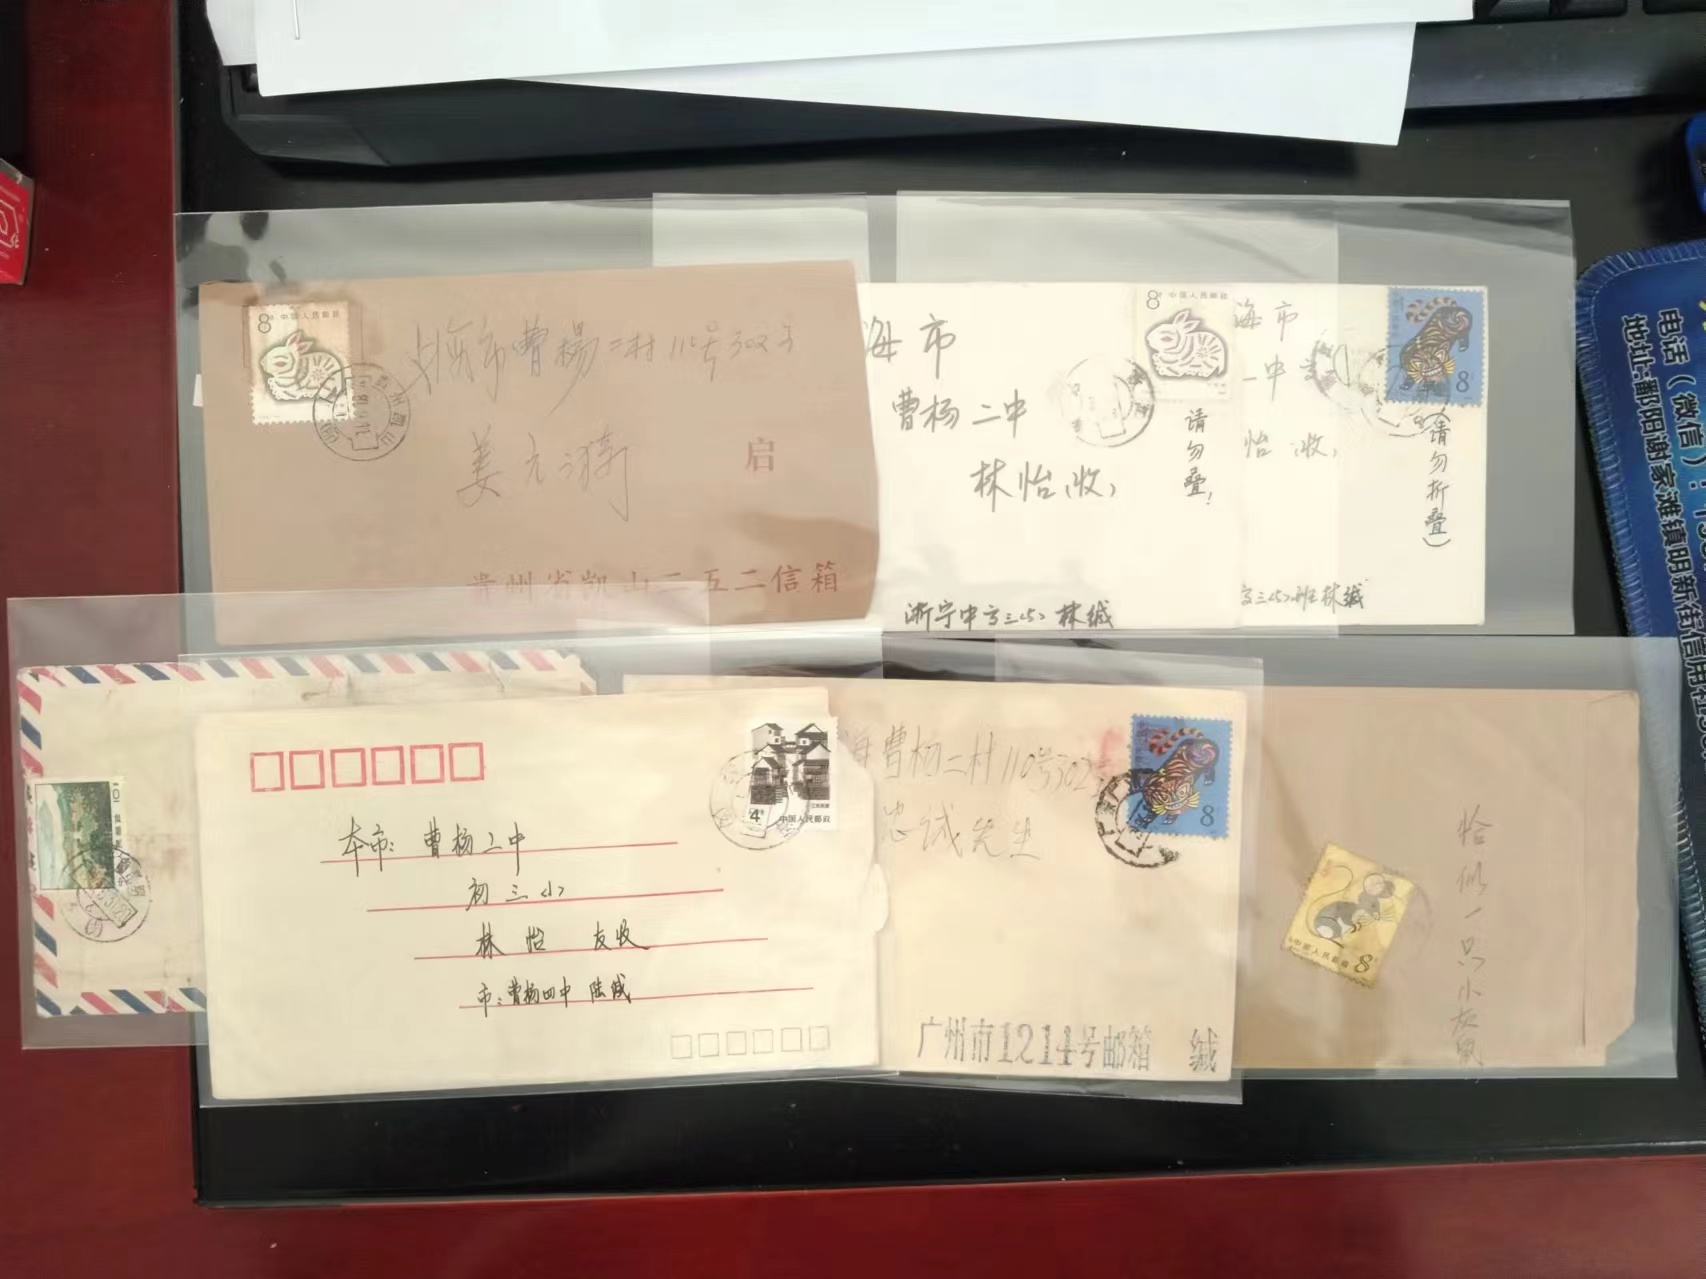 8分 中国人民邮政
上海市曹杨二村110号302室
姜元漪
启
贵州省凯山二五二信箱
海市
曹杨二中
林怡(收)
8分 中国人民邮政
请勿叠!
浙宁中高三(5) 林缄
海市
二中
怡(收)
8
请勿折叠)
高三(5)班林缄
本市: 曹杨二中
初三(1)
林怡 友收
市: 曹杨四中 陆缄
4分 中国人民邮政
海曹杨二村110号302
忠诚先生
8
广州市1214号邮箱 缄
中国人民邮政 8分
恰似一只小灰鼠
电话(微信):
地址:鄱阳谢家滩镇明新街信用社